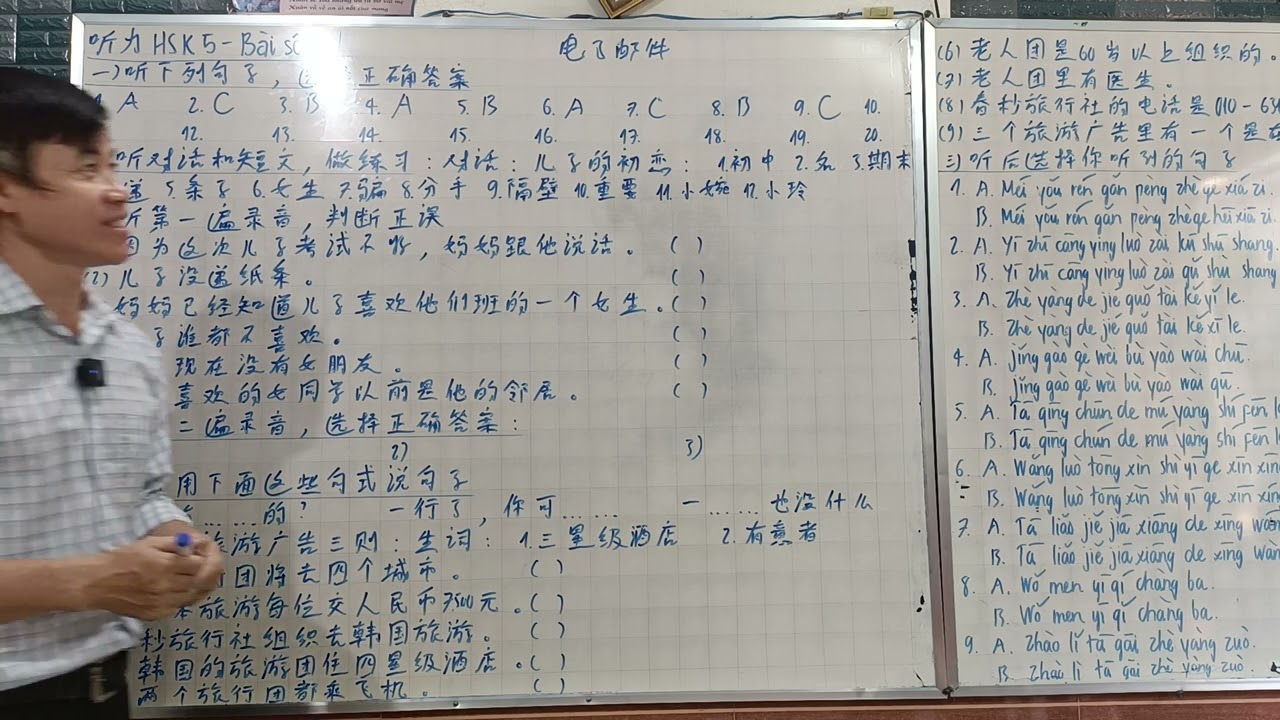 听力 HSK5 - Bài số
电子邮件
一) 听下列句子，选 正确答案
1. A 2. C 3. B 4. A 5. B 6. A 7. C 8. B 9. C 10.
12. 13. 14. 15. 16. 17. 18. 19. 20.
听对话和短文，做练习：对话：儿子的初恋：1.初中 2.名 3.期末
递 5.条子 6.女生 7.骗 8.分手 9.隔壁 10.重要 11.小婉 12.小玲
听第一遍录音，判断正误
因为这次儿子考试不好，妈妈跟他说话。 ( )
(2) 儿子没递纸条。 ( )
妈妈已经知道儿子喜欢他们班的一个女生。( )
子谁都不喜欢。 ( )
现在没有女朋友。 ( )
喜欢的女同学以前是他的邻居。 ( )
二遍录音，选择正确答案：
2) 3)
用下面这些句式说句子
……的？ 一行了，你可…… 一……也没什么
旅游广告三则：生词：1.三星级酒店 2.有意者
团将去四个城市。 ( )
本旅游每位交人民币7500元。( )
秒旅行社组织去韩国旅游。 ( )
韩国的旅游团住四星级酒店。( )
两个旅行团都乘飞机。 ( )
(6) 老人团是60岁以上组织的。
(7) 老人团里有医生。
(8) 春秒旅行社的电话是010-63
(9) 三个旅游广告里有一个是在
三) 听后选择你听到的句子
1. A. Méi yǒu rén gǎn pèng zhè ge xiá zi.
B. Méi yǒu rén gǎn pèng zhè ge hēi xiā zi.
2. A. Yī zhī cāng ying luò zài kū shù shang
B. Yī zhī cāng ying luò zài gǔ shù shang
3. A. Zhè yàng de jié guǒ tài kě yí le.
B. Zhè yàng de jié guǒ tài kě xī le.
4. A. jǐng gào gè wèi bù yào wài chū.
B. jǐng gào gè wèi bù yào wài qū.
5. A. Tā qīng chūn de mú yàng shí fēn
B. Tā qīng chún de mú yàng shí fēn
6. A. Wǎng luò tōng xìn shì yī ge xīn xīng
B. Wǎng luò tōng xìn shì yī ge xīn xíng
7. A. Tā liǎo jiě jiā xiāng de xīng wàng
B. Tā liǎo jiě jiā xiāng de xīng wàng
8. A. Wǒ men yī qǐ chàng ba.
B. Wǒ men yī qǐ cháng ba.
9. A. zhào lǐ tā gāi zhè yàng zuò.
B. Zhào lì tā gāi zhè yàng zuò.